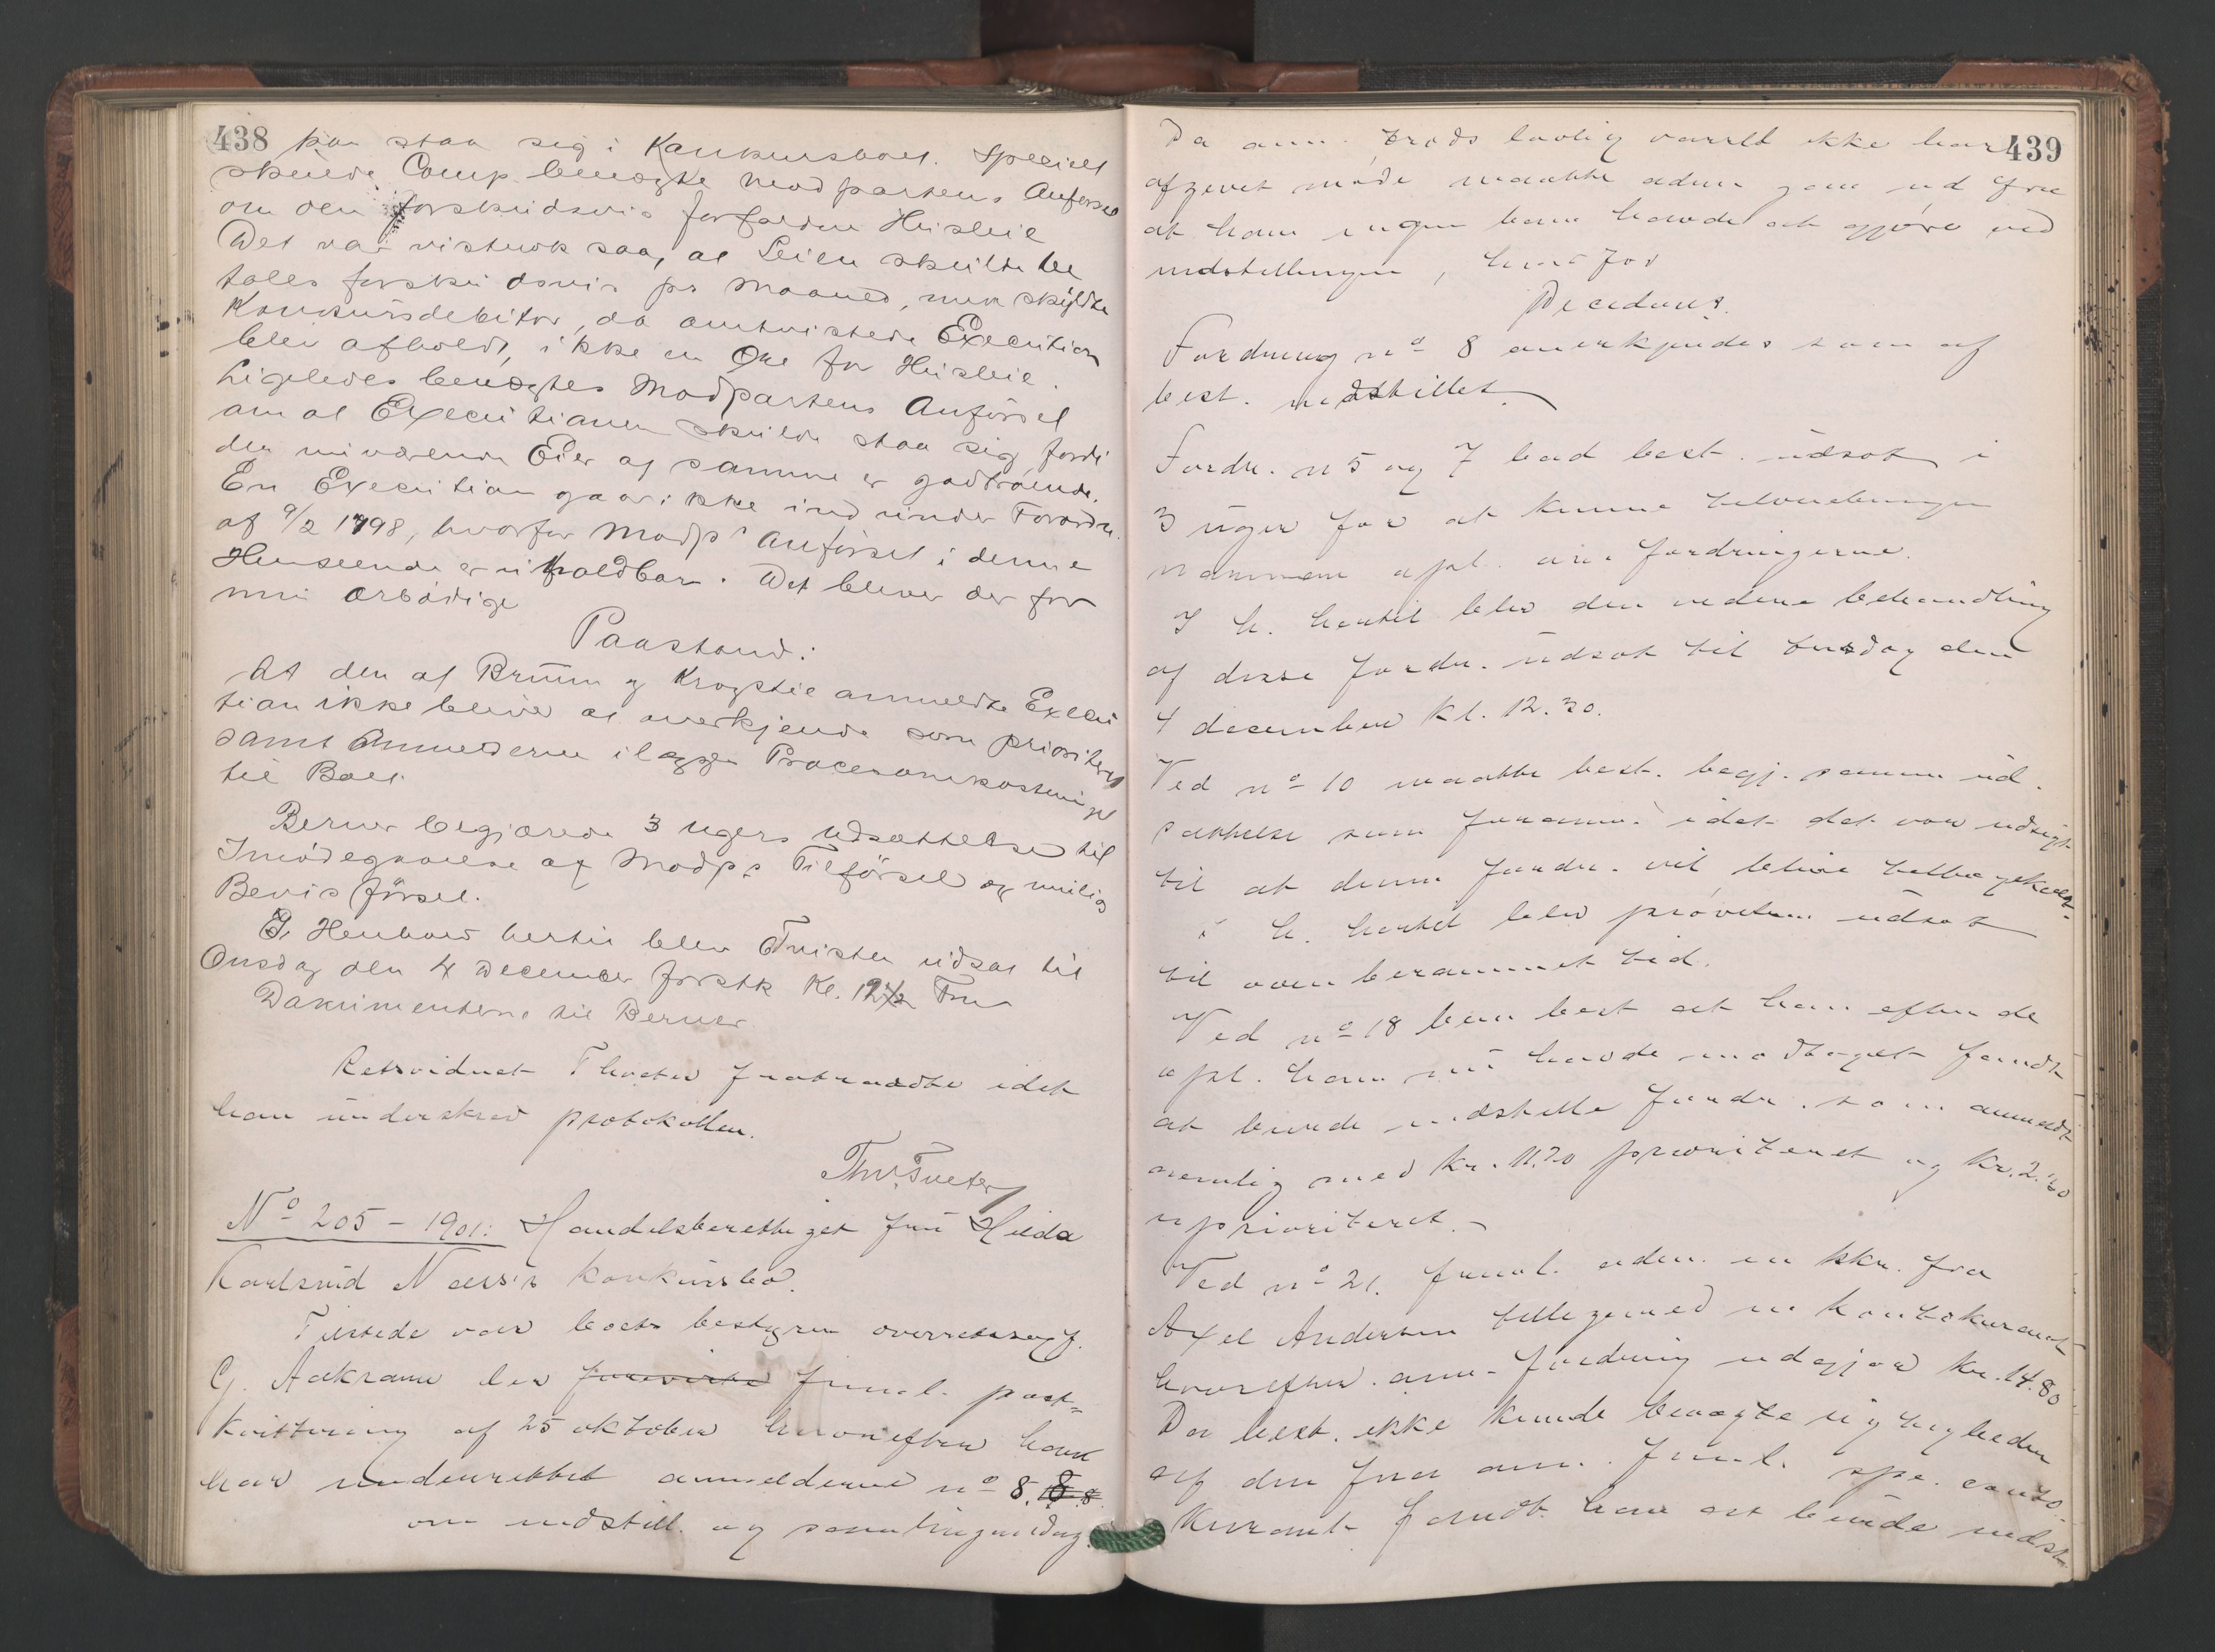 438
kan staa sig i Konkursboet. Specielt
skulde Comp. benægte Modpartens Anførsel
om den forskudsvis forfaldne Husleie
Det var vistnok saa, at Leien skulde be
tales forskudsvis pr Maaned, men skyldte
Konkursdebitor, da omtvistede Execution
blev afholdt, ikke en Øre for Husleie.
Ligeledes benægtes Modpartens Anførsel
om at Executionen skulde staa sig fordi
den nuværende Eier af samme er godtroende.
En Execution gaar ikke ind under Forordn.
af 9/2 1798, hvorfor Modps Anførsel i denne
Henseende er uholdbar. Det bliver der for
min ærbødige
Paastand:
At den af Bruun og Krogstie anmeldte Execu
tion ikke bliver at anerkjende som prioriteret
samt Anmelderne ilægges Procesomkostninger
til Boet.
Berner begjærede 3 ugers Udsættelse til
Imødegaaelse af Modps Tilførsel og mulig
Bevisførsel.
I Henhold hertil blev Tvisten udsat til
Onsdag den 4 December førstk Kl. 12½ Fm
Dokumenterne til Berner
Retsvidnet Thv. Tveter fratraadte idet
han underskrev protokollen.
Thv. Tveter
No 205 – 1901: Handelsberettiget fru Hilda
Karlsrud Næss's konkursbo.
Tilstede var boets bestyrer overretssagf.
G. Aakrann der freml. post-
kvittering af 25 oktober hvorefter han
har underrettet anmelderne no 8. 18. 8.
om indstill. og samlingen idag.
439
Da anm. trods lovlig varsel ikke har
afgivet møde maatte adm. gaa ud fra
at han ingen bem. havde at gjøre ved
indstillingen, hvorfor
Decideres:
Fordring no 8 anerkjendes som af
best. indstillet.
Fordr. n 5 og 7 bad best. udsat i
3 uger for at kunne
opl. om fordringerne.
I h. hertil blev den videre behandling
af disse fordr. udsat til onsdag den
4 december kl. 12.30.
Ved no 10 maatte best. begj. samme ud.
sættelse som foran idet det var udsigt
til at denne fordr. vil blive tilbagekaldt.
i h. hertil blev prøvelsen udsat
til oven berammet tid.
Ved no 18 bem. best at han efter de
opl. han nu havde modtaget fandt
at burde indstille fordr. som anmeldt
nemlig med kr. 11.20 prioriteret og kr. 2.20
uprioriteret.
Ved no 21. freml. adm. en skr. fra
Axel Andersen tilligemed en kontokurant
hvorefter anm. fordring udgjør kr. 14.80
Da best. ikke kunde benægte rigtigheden
af den fra anm. freml. spec. conto
kurant fandt han at burde indst.